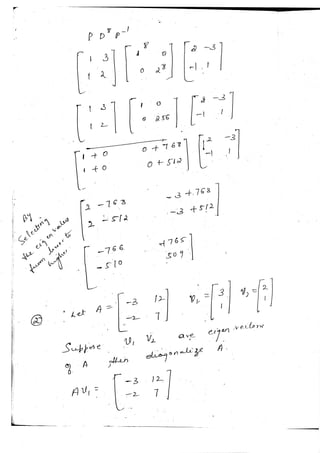 P D⁸ P⁻¹
[1 3 1 2] [1⁸ 0 0 2⁸] [2 -3 -1 1]
[1 3 1 2] [1 0 0 256] [2 -3 -1 1]
[1+0 0+768 1+0 0+512] [2 -3 -1 1]
[2 -768 -3+768 2 -512 -3+512]
[-766 +765 -510 509]
By Selecting the eigen values from lower to higher
② Let A = [-3 12 -2 7] v₁ = [3 1] v₂ = [2 1]
Suppose v₁ v₂ are eigen vectors
of A then diagonalize A.
AV₁ = [-3 12 -2 7]